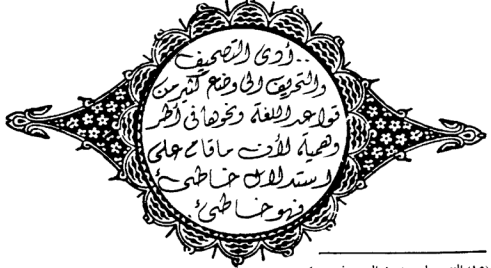 .. أدى التصحيف
والتحريف الى وضع كثير من
قواعد اللغة ونحوها فى أطر
وهمية لأن ما قام على
استدلال خاطئ
فهو خاطئ .